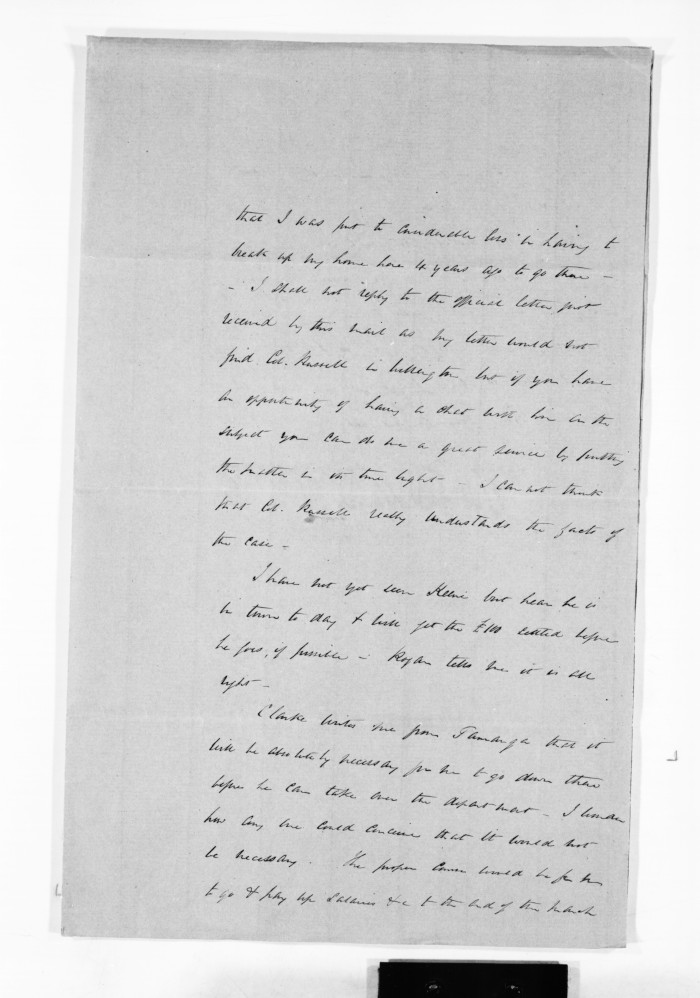 that I was put to considerable loss in having to
break up my home here 4 years ago to go there -
- I shall not reply to the official letter just
received by this mail, as my letter would not
find Col. Russell in Wellington, but if you have
an opportunity of having a chat with him on the
subject you can do me a great service by putting
the matter in its true light - I can not think
that Col. Russell really understands the facts of
the case -
I have not yet seen but hear he is
in town to day & will get the £100 settled before
he goes, if possible - Rogan tells me it is all
right -
Clarke writes me from Tauranga that it
will be absolutely necessary for me to go down there
before he can take over the department - I wonder
how any one could conceive that it would not
be necessary. The proper course would be for me
to go & pay up Salaries &c to the end of this March